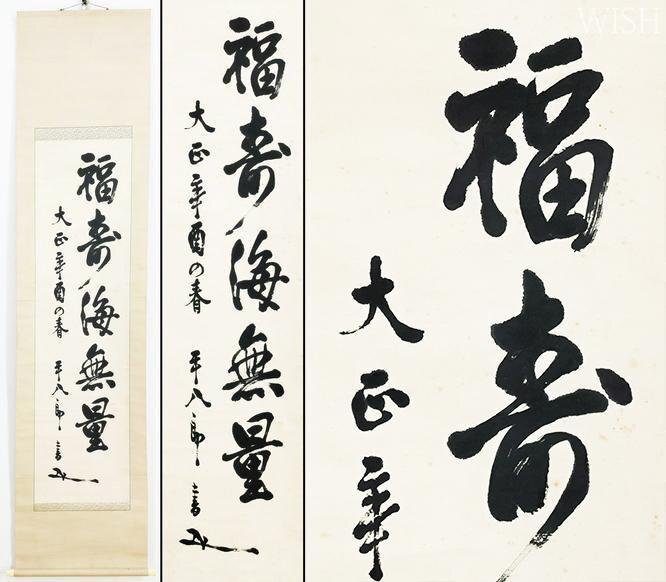 福寿海無量
大正辛酉の春 平八郎 書
福寿海無量
大正辛酉の春 平八郎 書
WISH
福寿
大正辛